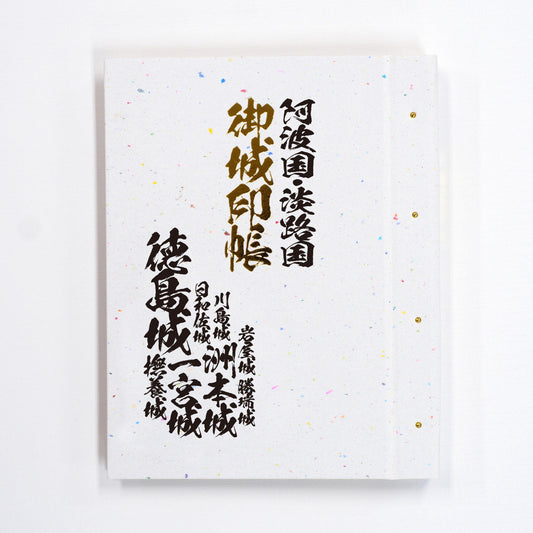 阿波国・淡路国
御城印帳
岩屋城 勝瑞城
川島城 洲本城
日和佐城 一宮城
徳島城 撫養城